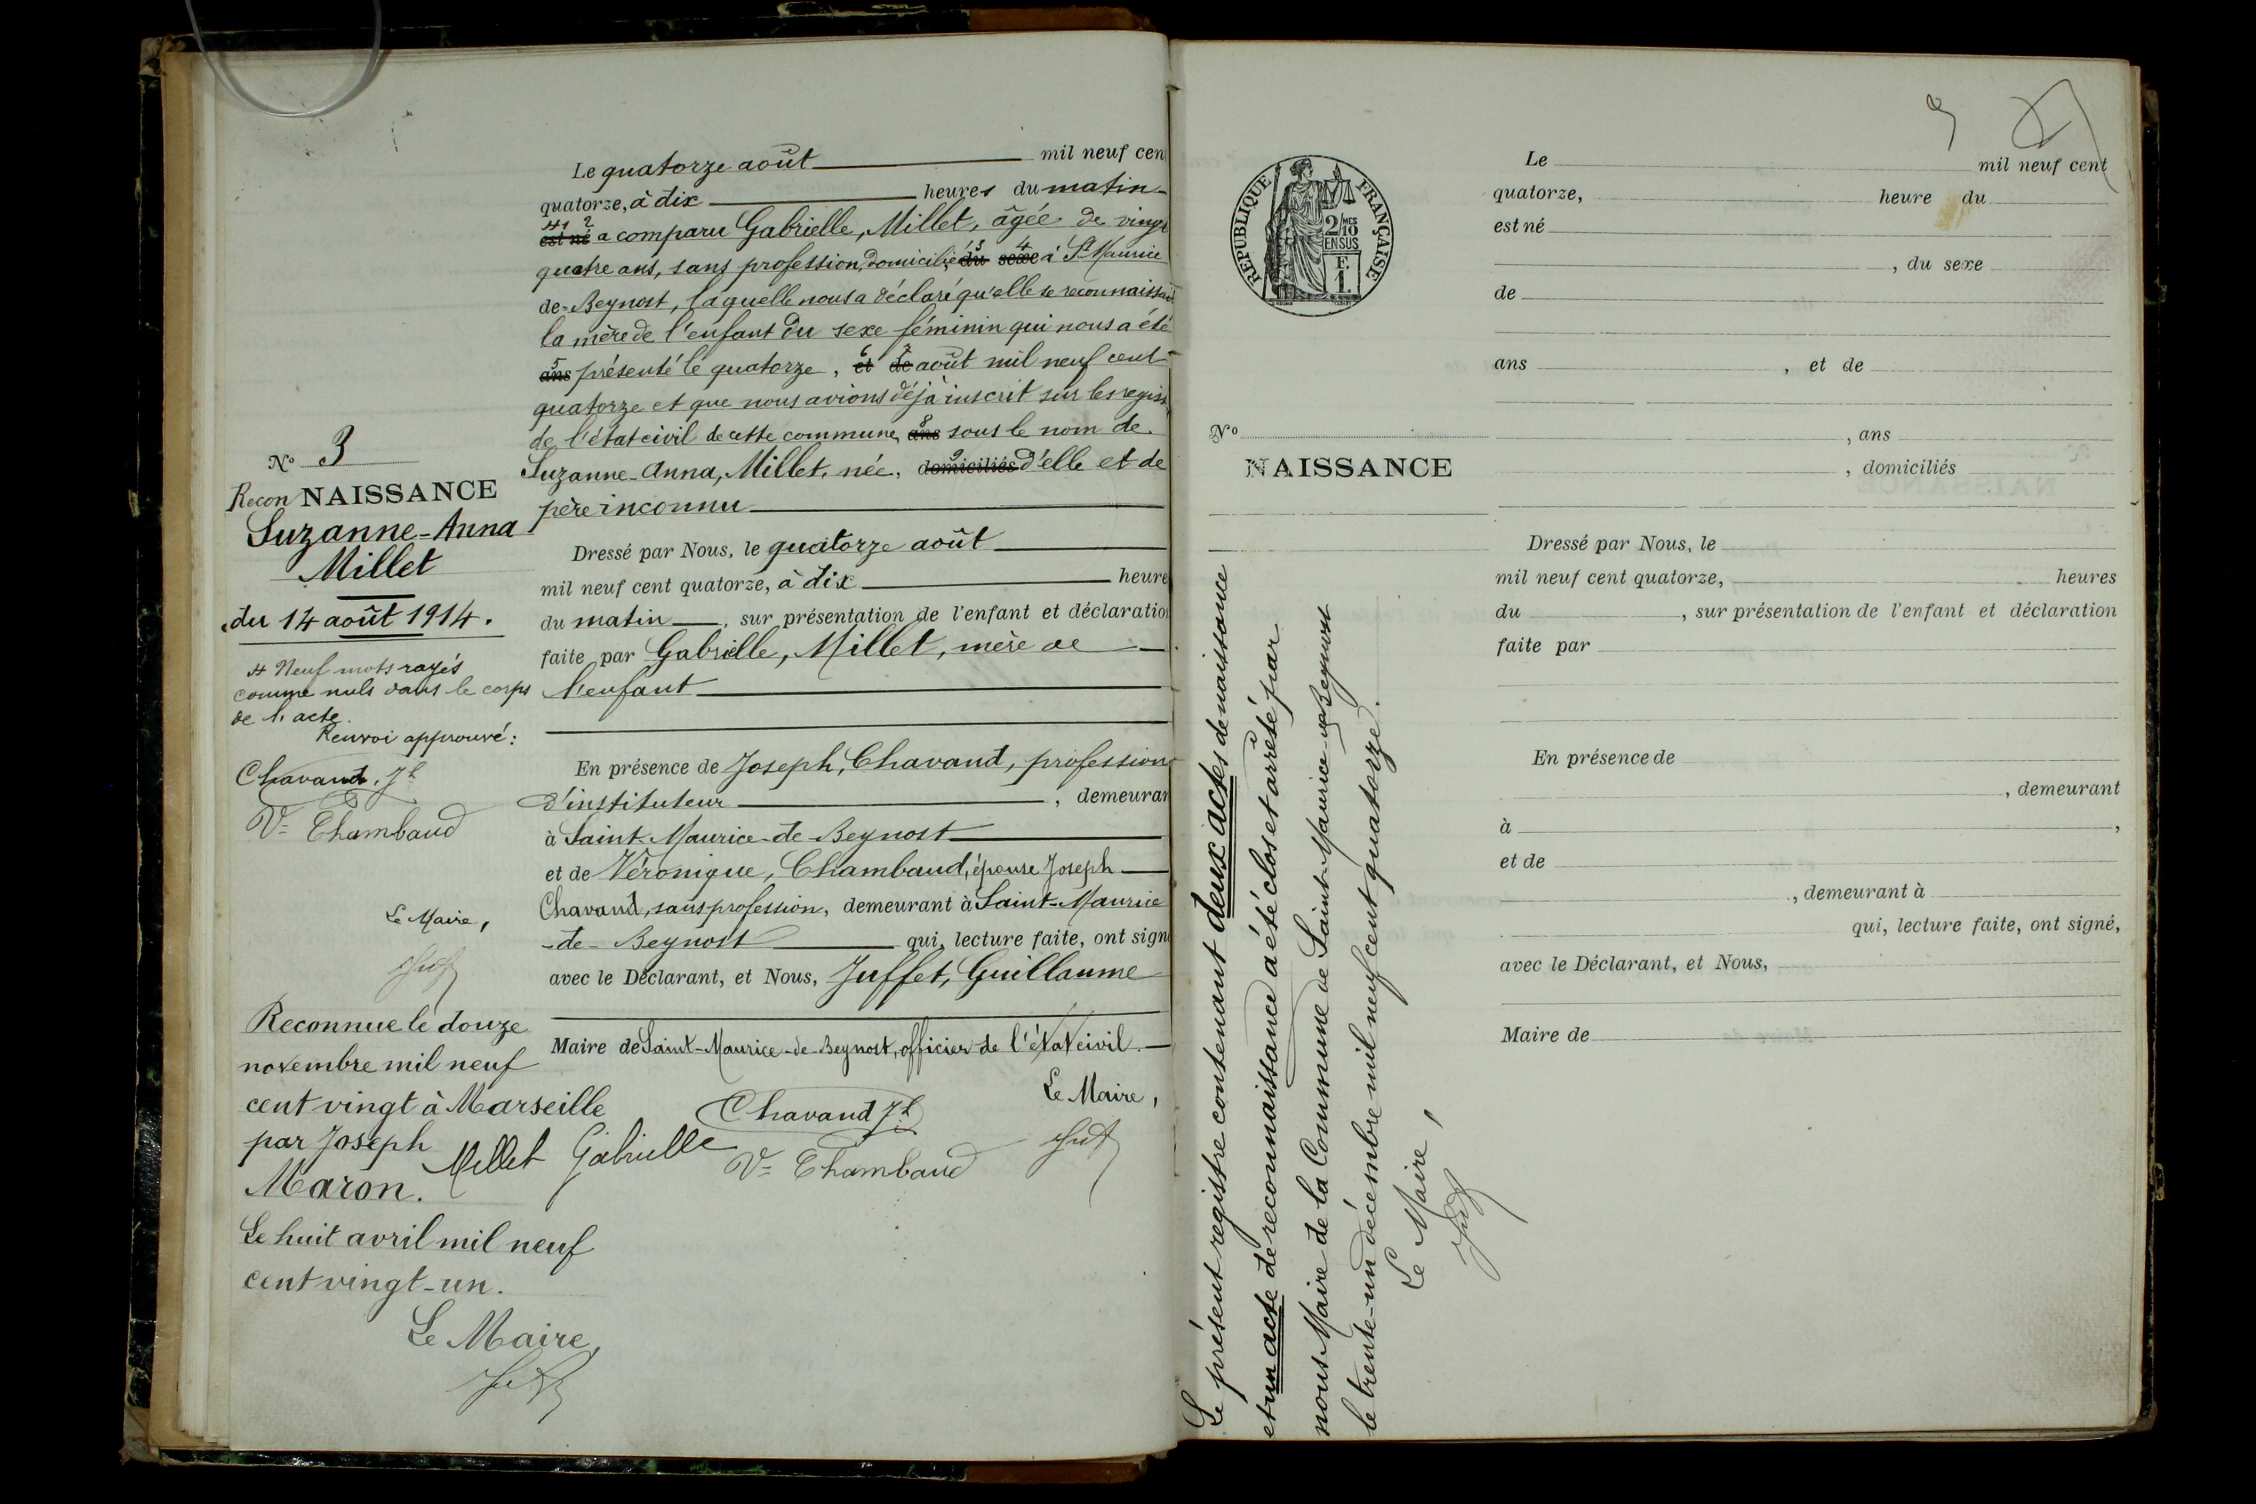 Le quatorze août mil neuf cen
quatorze, à dix heures du matin
1 2
est né a comparu Gabrielle, Millet, âgée de vingt
quatre ans, sans profession, domiciliée du 3 sexe 4 à St Maurice
de-Beynost, laquelle nous a déclaré qu'elle se reconnaissait
la mère de l'enfant du sexe féminin qui nous a été
5 ans présenté le quatorze, 6 et 7 de août mil neuf cent
quatorze et que nous avions déjà inscrit sur les regis
de l'état civil de cette commune 8 ans sous le nom de
Suzanne-Anna, Millet, née, 9 domiciliés d'elle et de
père inconnu
Dressé par Nous, le quatorze août
mil neuf cent quatorze, à dix heure
du matin, sur présentation de l'enfant et déclaratio
faite par Gabrielle, Millet, mère de
l'enfant
En présence de Joseph, Chavand, profession
d'instituteur, demeuran
à Saint-Maurice-de-Beynost
et de Véronique, Chambaud, épouse Joseph
Chavand, sans profession, demeurant à Saint-Maurice
-de-Beynost qui, lecture faite, ont sign
avec le Déclarant, et Nous, Juffet, Guillaume
Maire de Saint-Maurice-de-Beynost, officier de l'état civil.
Le Maire,
Chavand Jh
Millet Gabrielle
Ve Chambaud
Juf
No 3
Recon NAISSANCE
Suzanne-Anna
Millet
du 14 août 1914.
Neuf mots rayés
comme nuls dans le corps
de l'acte.
Renvoi approuvé:
Chavand, Jh
Ve Chambaud
Le Maire,
Juf
Reconnue le douze
novembre mil neuf
cent vingt à Marseille
par Joseph
Maron.
Le huit avril mil neuf
cent vingt-un.
Le Maire,
REPUBLIQUE FRANÇAISE
2/10 MES
EN SUS
F.
1.
No
NAISSANCE
Le présent registre contenant deux actes de naissance
et un acte de reconnaissance a été clos et arrêté par
nous Maire de la Commune de Saint-Maurice-de-Beynost
le trente-un décembre mil neuf cent quatorze.
Le Maire,
Juf
Le mil neuf cent
quatorze, heure du
est né
, du sexe
de
ans , et de
, ans
, domiciliés
Dressé par Nous, le
mil neuf cent quatorze, heures
du , sur présentation de l'enfant et déclaration
faite par
En présence de
, demeurant
à ,
et de
, demeurant à
qui, lecture faite, ont signé,
avec le Déclarant, et Nous,
Maire de